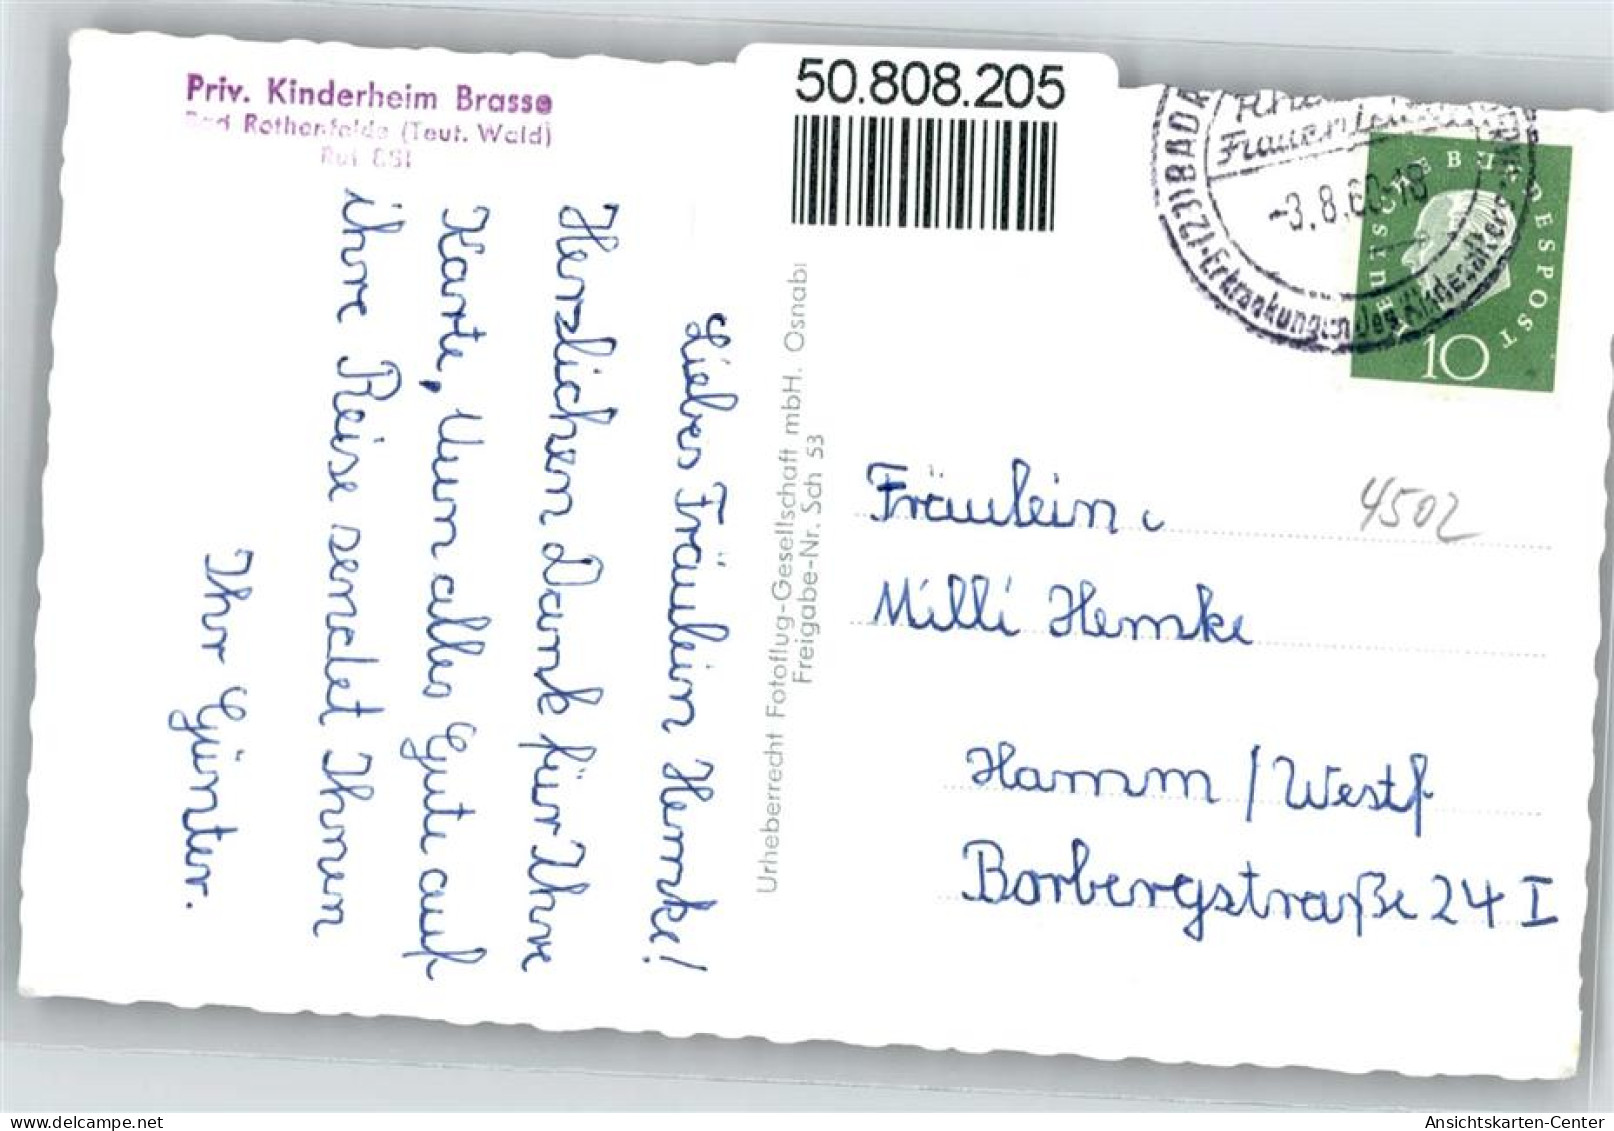 Priv. Kinderheim Brasse
Bad Rothenfelde (Teut. Wald)
Ruf 651
50.808.205
Liebes Fräulein Hemske!
Herzlichen Dank für Ihre
Karte, Nun alles Gute auf
ihre Reise sendet Ihnen
Ihr Günter.
Urheberrecht Fotoflug-Gesellschaft mbH. Osnabr
Freigabe-Nr. Sch 53
(23) BAD R
Frauenleiden
-3.8.60-18
Erkrankungen des Kindesalters
DEUTSCHE BUNDESPOST
10
4502
Fräulein
Milli Hemske
Hamm / Westf
Borbergstraße 24 I
Ansichtskarten-Center